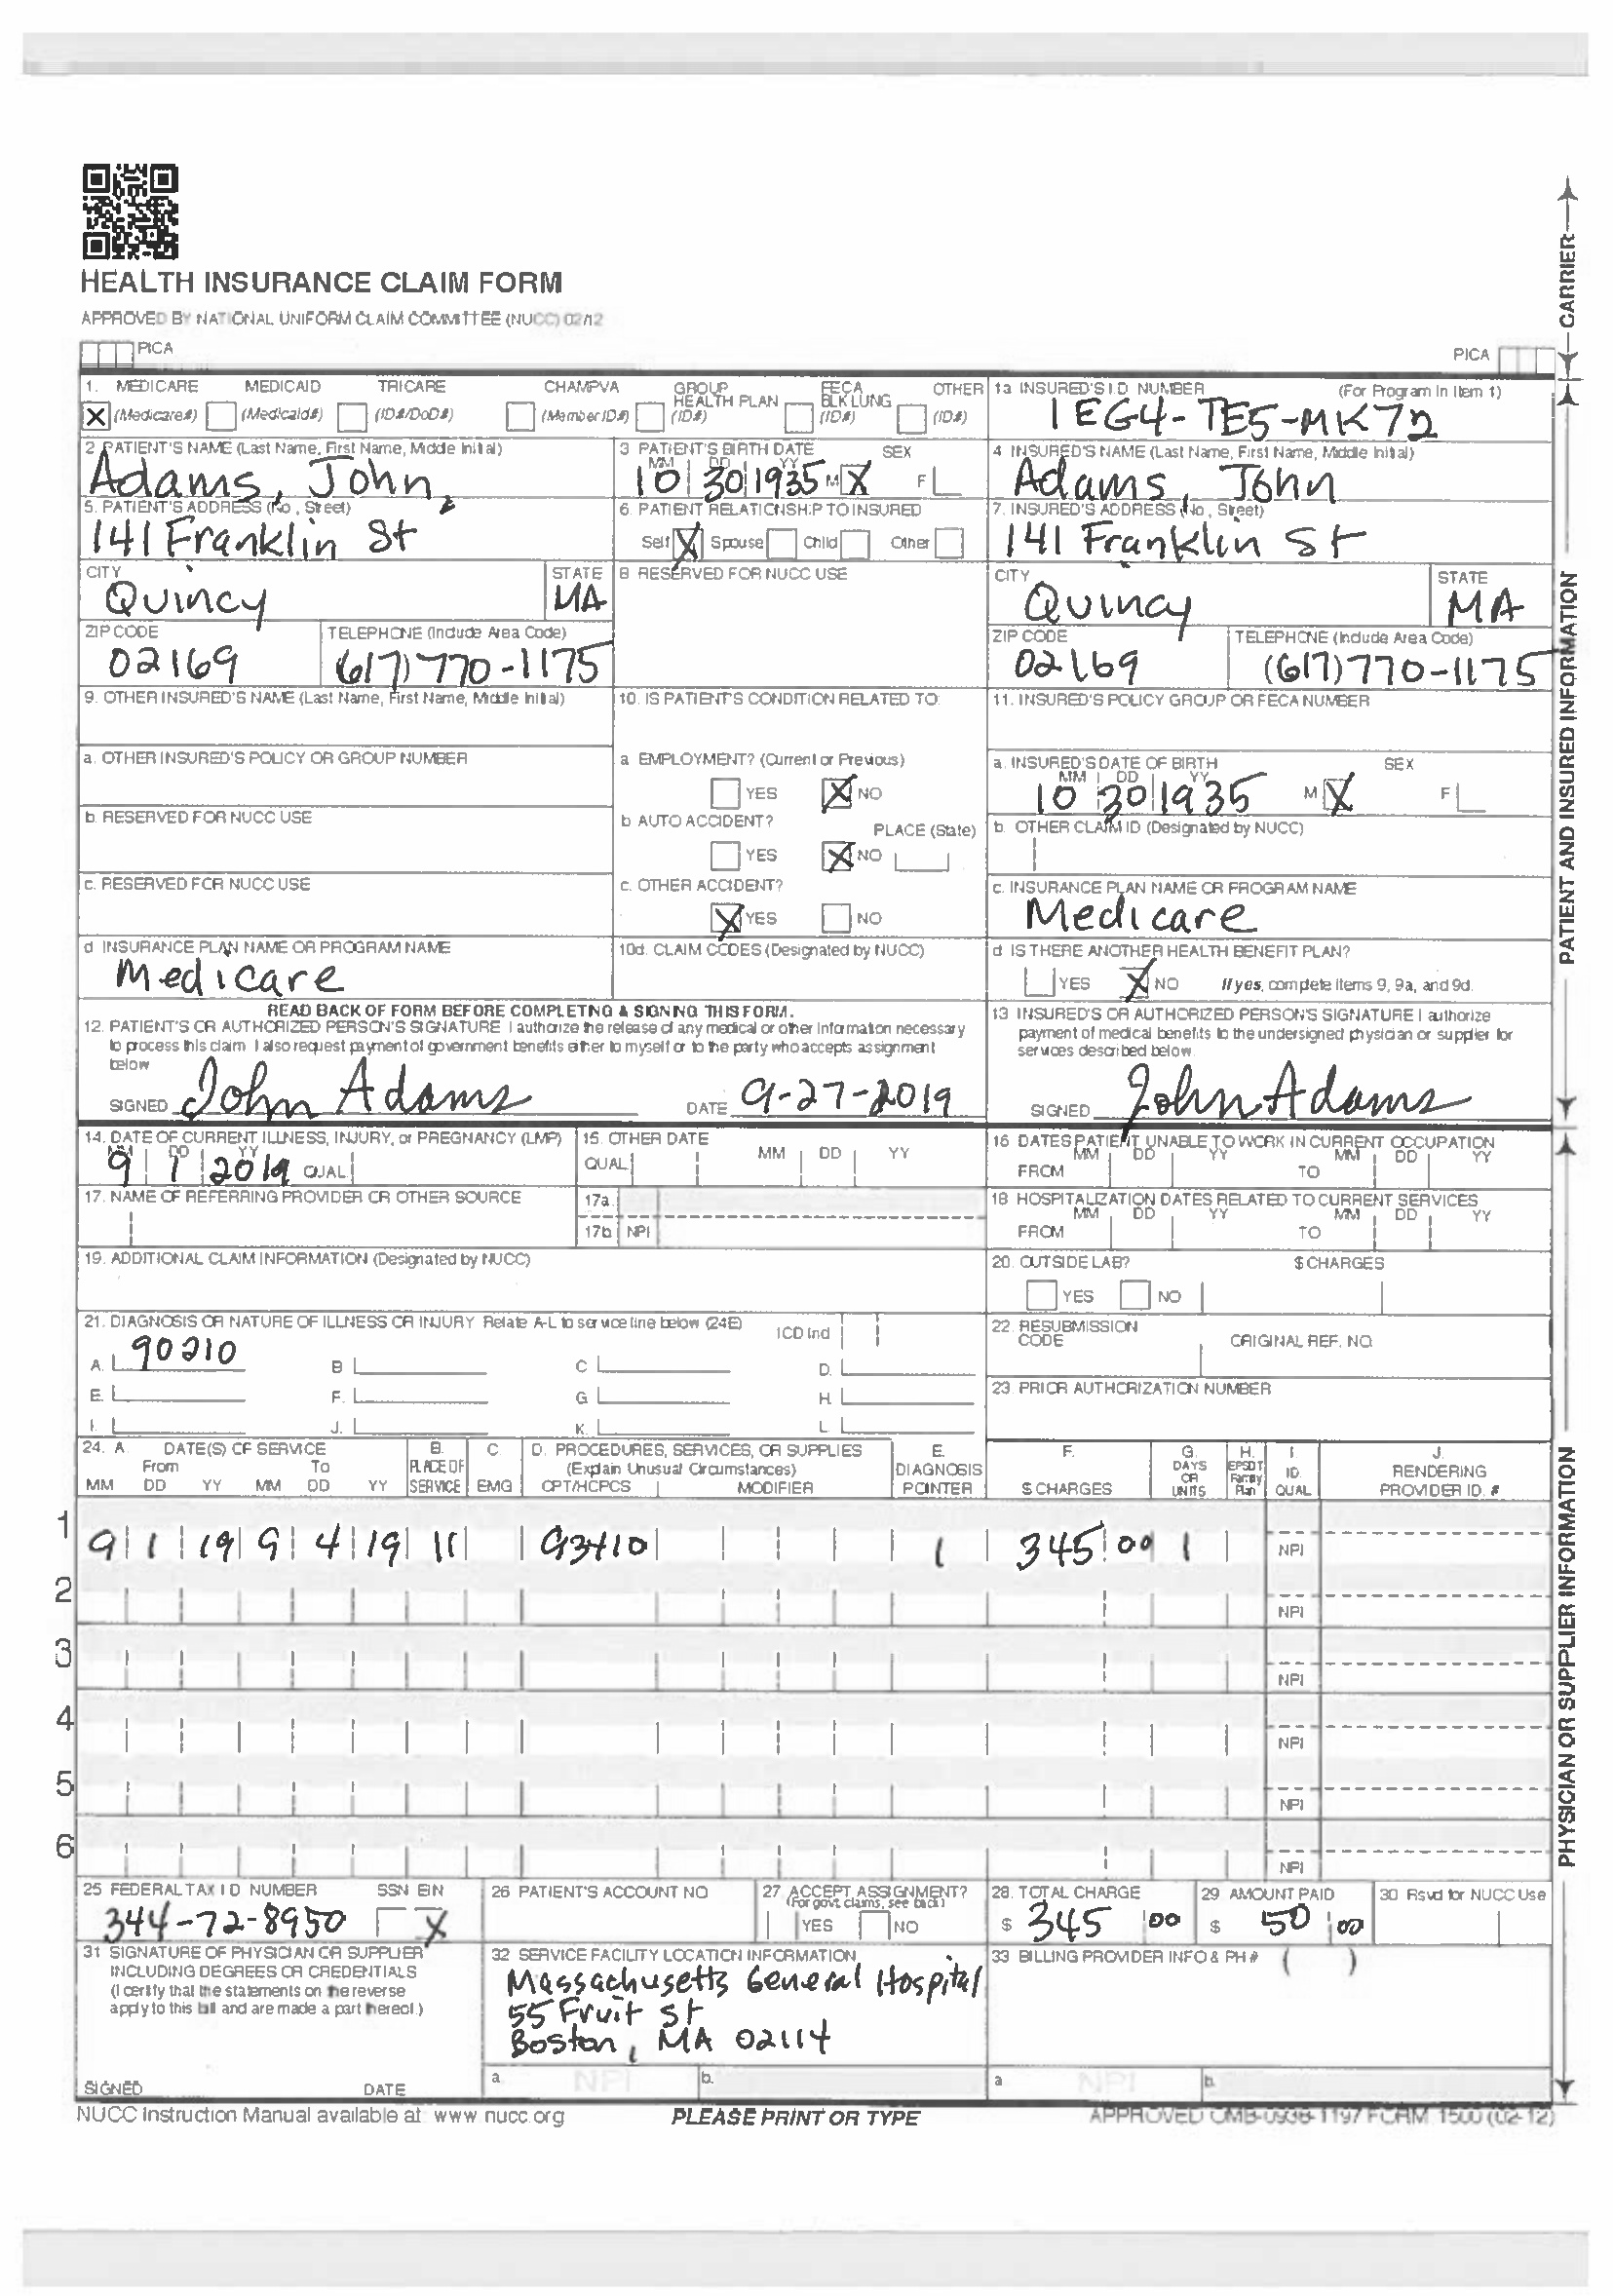 HEALTH INSURANCE CLAIM FORM
APPROVED BY NATIONAL UNIFORM CLAIM COMMITTEE (NUCC) 02/12
PICA
PICA
CARRIER
1. MEDICARE MEDICAID TRICARE CHAMPVA GROUP HEALTH PLAN FECA BLK LUNG OTHER
X (Medicare#) (Medicaid#) (ID#/DoD#) (Member ID#) (ID#) (ID#) (ID#)
1a INSURED'S I.D. NUMBER (For Program in Item 1)
1EG4-TE5-MK72
2 PATIENT'S NAME (Last Name, First Name, Middle Initial)
Adams, John,
3 PATIENT'S BIRTH DATE SEX
MM DD YY
10 30 1935 M X F
4 INSURED'S NAME (Last Name, First Name, Middle Initial)
Adams, John
5. PATIENT'S ADDRESS (No., Street)
141 Franklin St
6. PATIENT RELATIONSHIP TO INSURED
Self X Spouse Child Other
7. INSURED'S ADDRESS (No., Street)
141 Franklin St
CITY STATE
Quincy MA
8 RESERVED FOR NUCC USE
CITY STATE
Quincy MA
ZIP CODE TELEPHONE (Include Area Code)
02169 (617) 770-1175
ZIP CODE TELEPHONE (Include Area Code)
02169 (617) 770-1175
9. OTHER INSURED'S NAME (Last Name, First Name, Middle Initial)
10. IS PATIENT'S CONDITION RELATED TO:
11. INSURED'S POLICY GROUP OR FECA NUMBER
a. OTHER INSURED'S POLICY OR GROUP NUMBER
a EMPLOYMENT? (Current or Previous)
YES X NO
a. INSURED'S DATE OF BIRTH SEX
MM DD YY
10 30 1935 M X F
b. RESERVED FOR NUCC USE
b AUTO ACCIDENT? PLACE (State)
YES X NO
b. OTHER CLAIM ID (Designated by NUCC)
c. RESERVED FOR NUCC USE
c. OTHER ACCIDENT?
X YES NO
c. INSURANCE PLAN NAME OR PROGRAM NAME
Medicare
d INSURANCE PLAN NAME OR PROGRAM NAME
Medicare
10d. CLAIM CODES (Designated by NUCC)
d IS THERE ANOTHER HEALTH BENEFIT PLAN?
YES X NO If yes, complete items 9, 9a, and 9d.
READ BACK OF FORM BEFORE COMPLETING & SIGNING THIS FORM.
12. PATIENT'S OR AUTHORIZED PERSON'S SIGNATURE I authorize the release of any medical or other information necessary
to process this claim. I also request payment of government benefits either to myself or to the party who accepts assignment
below
SIGNED John Adams DATE 9-27-2019
13 INSURED'S OR AUTHORIZED PERSON'S SIGNATURE I authorize
payment of medical benefits to the undersigned physician or supplier for
services described below.
SIGNED John Adams
PATIENT AND INSURED INFORMATION
14. DATE OF CURRENT ILLNESS, INJURY, or PREGNANCY (LMP)
MM DD YY
9 1 2019 QUAL
15. OTHER DATE
QUAL MM DD YY
16 DATES PATIENT UNABLE TO WORK IN CURRENT OCCUPATION
MM DD YY MM DD YY
FROM TO
17. NAME OF REFERRING PROVIDER OR OTHER SOURCE
17a.
17b NPI
18 HOSPITALIZATION DATES RELATED TO CURRENT SERVICES
MM DD YY MM DD YY
FROM TO
19. ADDITIONAL CLAIM INFORMATION (Designated by NUCC)
20. OUTSIDE LAB? $ CHARGES
YES NO
21. DIAGNOSIS OR NATURE OF ILLNESS OR INJURY Relate A-L to service line below (24E) ICD Ind
A. 90210 B C D.
E. F. G H
I. J. K. L
22. RESUBMISSION CODE ORIGINAL REF. NO.
23. PRIOR AUTHORIZATION NUMBER
24. A DATE(S) OF SERVICE B. C. D. PROCEDURES, SERVICES, OR SUPPLIES E. F. G. H. I. J.
From To PLACE OF (Explain Unusual Circumstances) DIAGNOSIS DAYS OR UNITS EPSDT Family Plan ID. QUAL RENDERING
MM DD YY MM DD YY SERVICE EMG CPT/HCPCS MODIFIER POINTER $ CHARGES PROVIDER ID. #
1
9 1 19 9 4 19 11 93410 1 345 00 1 NPI
2
NPI
3
NPI
4
NPI
5
NPI
6
NPI
25 FEDERAL TAX I D NUMBER SSN EIN
344-72-8950 X
26 PATIENT'S ACCOUNT NO
27 ACCEPT ASSIGNMENT?
(For govt. claims, see back)
YES NO
28. TOTAL CHARGE
$ 345 00
29 AMOUNT PAID
$ 50 00
30 Rsvd for NUCC Use
31 SIGNATURE OF PHYSICIAN OR SUPPLIER
INCLUDING DEGREES OR CREDENTIALS
(I certify that the statements on the reverse
apply to this bill and are made a part thereof.)
SIGNED DATE
32 SERVICE FACILITY LOCATION INFORMATION
Massachusetts General Hospital
55 Fruit St
Boston, MA 02114
a NPI b.
33 BILLING PROVIDER INFO & PH # ( )
a NPI b
PHYSICIAN OR SUPPLIER INFORMATION
NUCC Instruction Manual available at: www.nucc.org
PLEASE PRINT OR TYPE
APPROVED OMB-0938-1197 FORM 1500 (02-12)